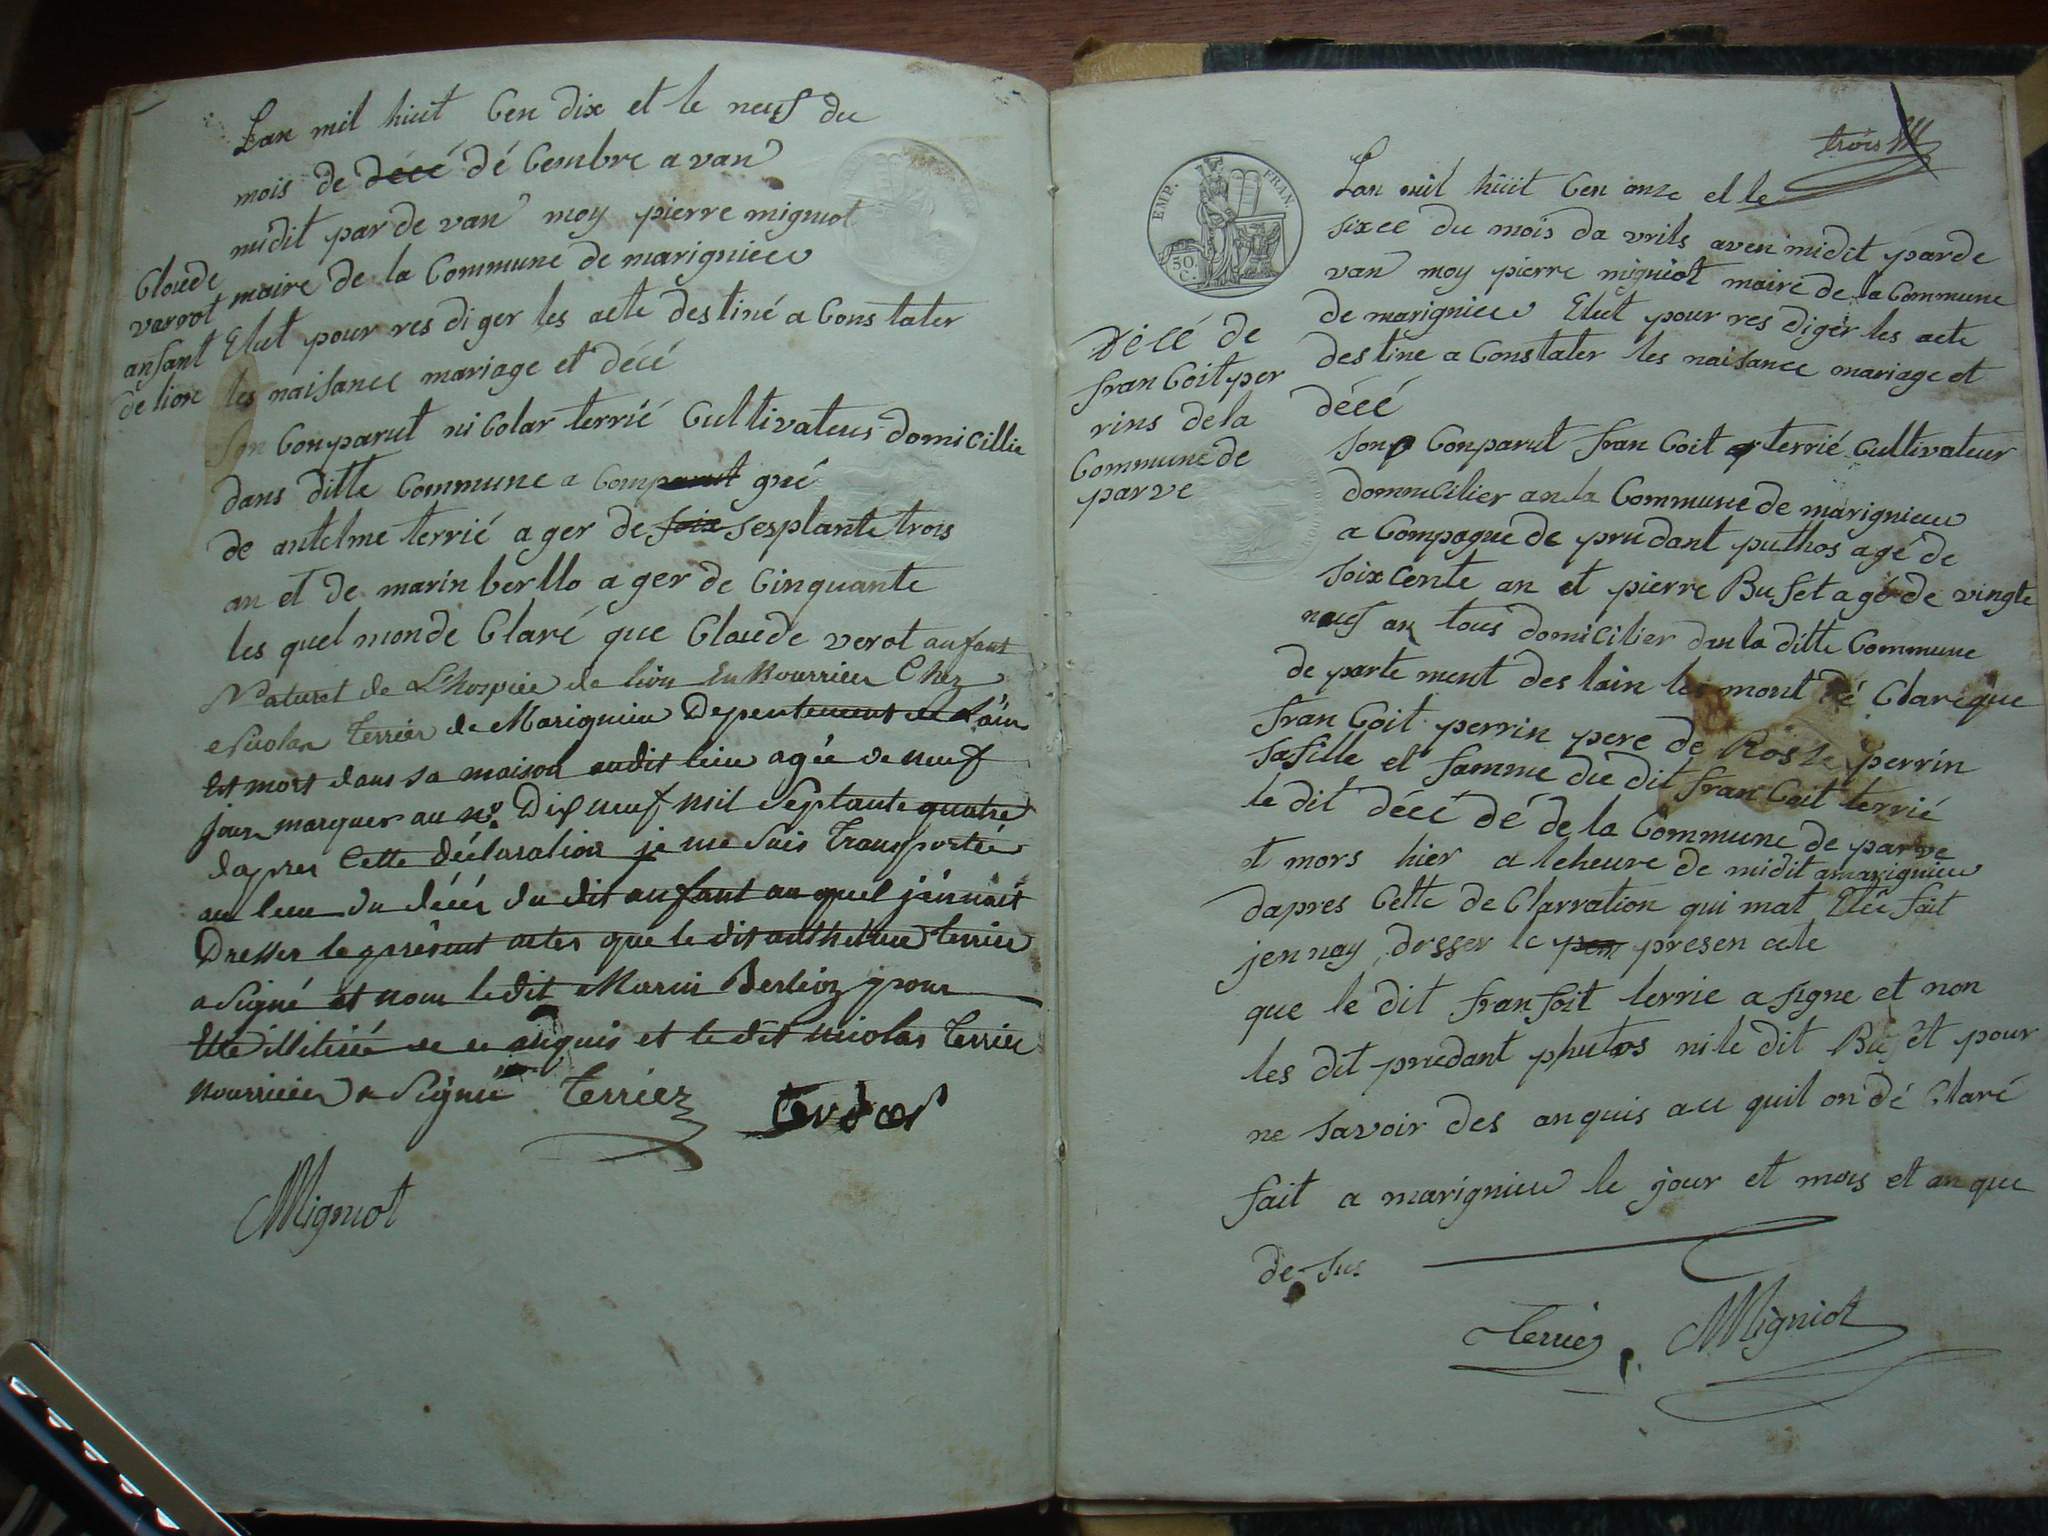 Lan mil huit Cen dix et le neuf du
mois de décé dé Cembre avan
midit par de van moy pierre migniot
maire de la Commune de marignieu
Elut pour res di ger les acte destiné a Constater
les naisance mariage et décé
Claude
varrot
anfant
de lion
Son Conparut ni Colar terrié Cultivateur domicillié
dans ditte Commune a Comparut gné
de antelme terrié a ger de soix sesplante trois
an et de marin berllo a ger de Cinquante
les quel mon de Claré que Claude verot anfant
Naturel de L'hospice de lion En Nourrice Chez
Nicolas Terrier de Marignieu Departement de l'ain
Est mort dans sa maison audit lieu agée de neuf
jour marquer au No. Dix neuf mil Septante quatre
dapres Cette déclaration je me suis Transportée
au lieu du décés du dit anfant au quel j'en nait
Dresser le présent actes que le dit anthelme terrier
a Signé et non le dit Marin Berlioz pour
Etre illiterée de ce anquis et le dit Nicolas Terrier
Nourricier a Signé Terrier
Migniot
trois
EMP. FRAN.
50
C.
Lan mil huit Cen onze et le
sixce du mois da vrils aven midit par de
van moy pierre migniot maire de la Commune
de marignieu Elut pour res diger les acte
destine a Constater les naisance mariage et
décé
Décé de
fran Coit per
rins de la
Commune de
parve
Son Conparut fran Coit terrié Cultivateur
dommicilier an la Commune de marignieu
a Compagne de prudant puthos agé de
soixcente an et pierre Bufet agé de vingte
neuf an tous domicilier dan la ditte Commune
de parte ment des lain les mont dé Claré que
fran Coit perrin pere de Rosse perrin
sa fille et famme du dit fran Coit terrié
le dit décé dé de la Commune de parve
et mors hier a leheure de midit a marignieu
dapres Cette de Clarration qui mat Etée fait
jen nay dresser le pen presen acte
que le dit fransoit terrie a signe et non
les dit prudant phutos ni le dit Bufet pour
ne savoir des anquis a ce quil on dé Claré
fait a marignieu le jour et mois et an que
de sus
Terrier Migniot